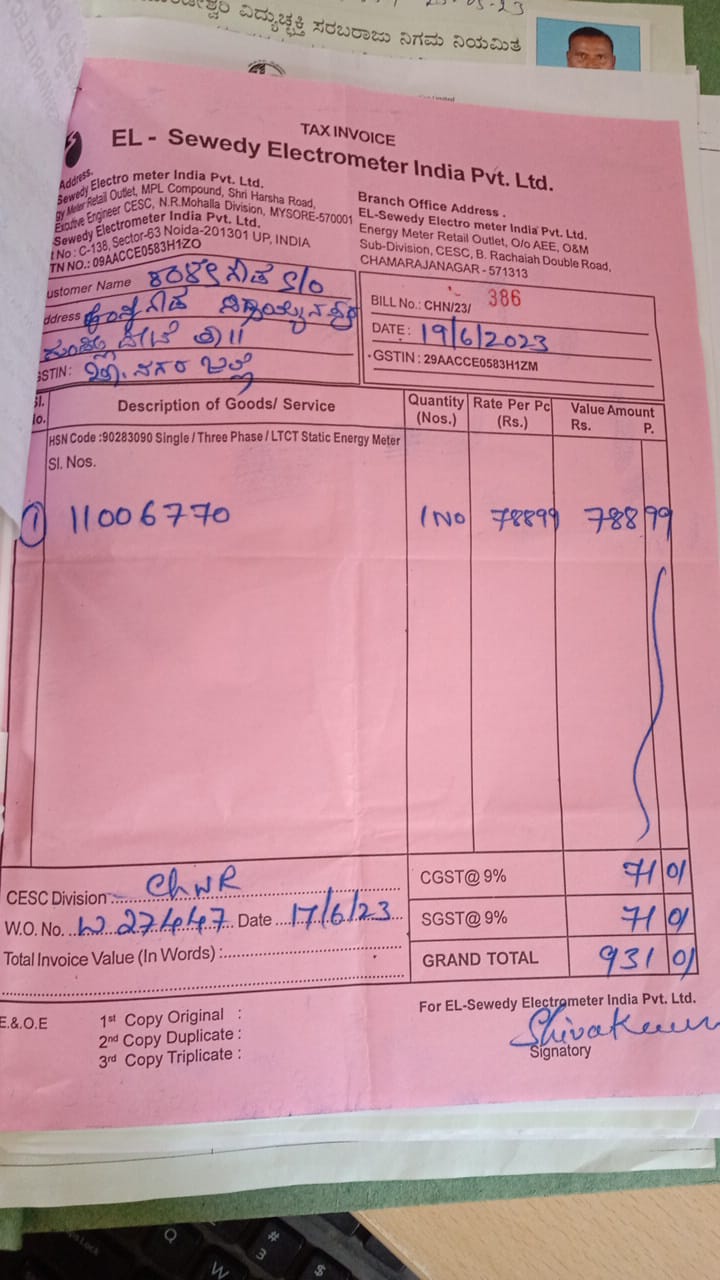 25-05-23
ವಿದ್ಯುಚ್ಛಕ್ತಿ ಸರಬರಾಜು ನಿಗಮ ನಿಯಮಿತ
TAX INVOICE
EL - Sewedy Electrometer India Pvt. Ltd.
Address.
Sewedy Electro meter India Pvt. Ltd.
gy Meter Retail Outlet, MPL Compound, Shri Harsha Road,
Executive Engineer CESC, N.R.Mohalla Division, MYSORE-570001
Sewedy Electrometer India Pvt. Ltd.
t No : C-138, Sector-63 Noida-201301 UP, INDIA
TN NO.: 09AACCE0583H1ZO
Branch Office Address .
EL-Sewedy Electro meter India Pvt. Ltd.
Energy Meter Retail Outlet, O/o AEE, O&M
Sub-Division, CESC, B. Rachaiah Double Road,
CHAMARAJANAGAR - 571313
ustomer Name
ddress
GSTIN:
BILL No.: CHN/23/ 386
DATE : 19/6/2023
GSTIN : 29AACCE0583H1ZM
Sl. No. Description of Goods/ Service Quantity (Nos.) Rate Per Pc (Rs.) Value Amount Rs. P.
HSN Code :90283090 Single / Three Phase / LTCT Static Energy Meter
Sl. Nos.
1 11006770 1 No 78899 788 99
CESC Division ChNR
W.O. No. W 27447 Date 17/6/23
Total Invoice Value (In Words) :
CGST@ 9% 71 01
SGST@ 9% 71 01
GRAND TOTAL 931 01
E.&.O.E
1st Copy Original :
2nd Copy Duplicate :
3rd Copy Triplicate :
For EL-Sewedy Electrometer India Pvt. Ltd.
Shivakumar
Signatory